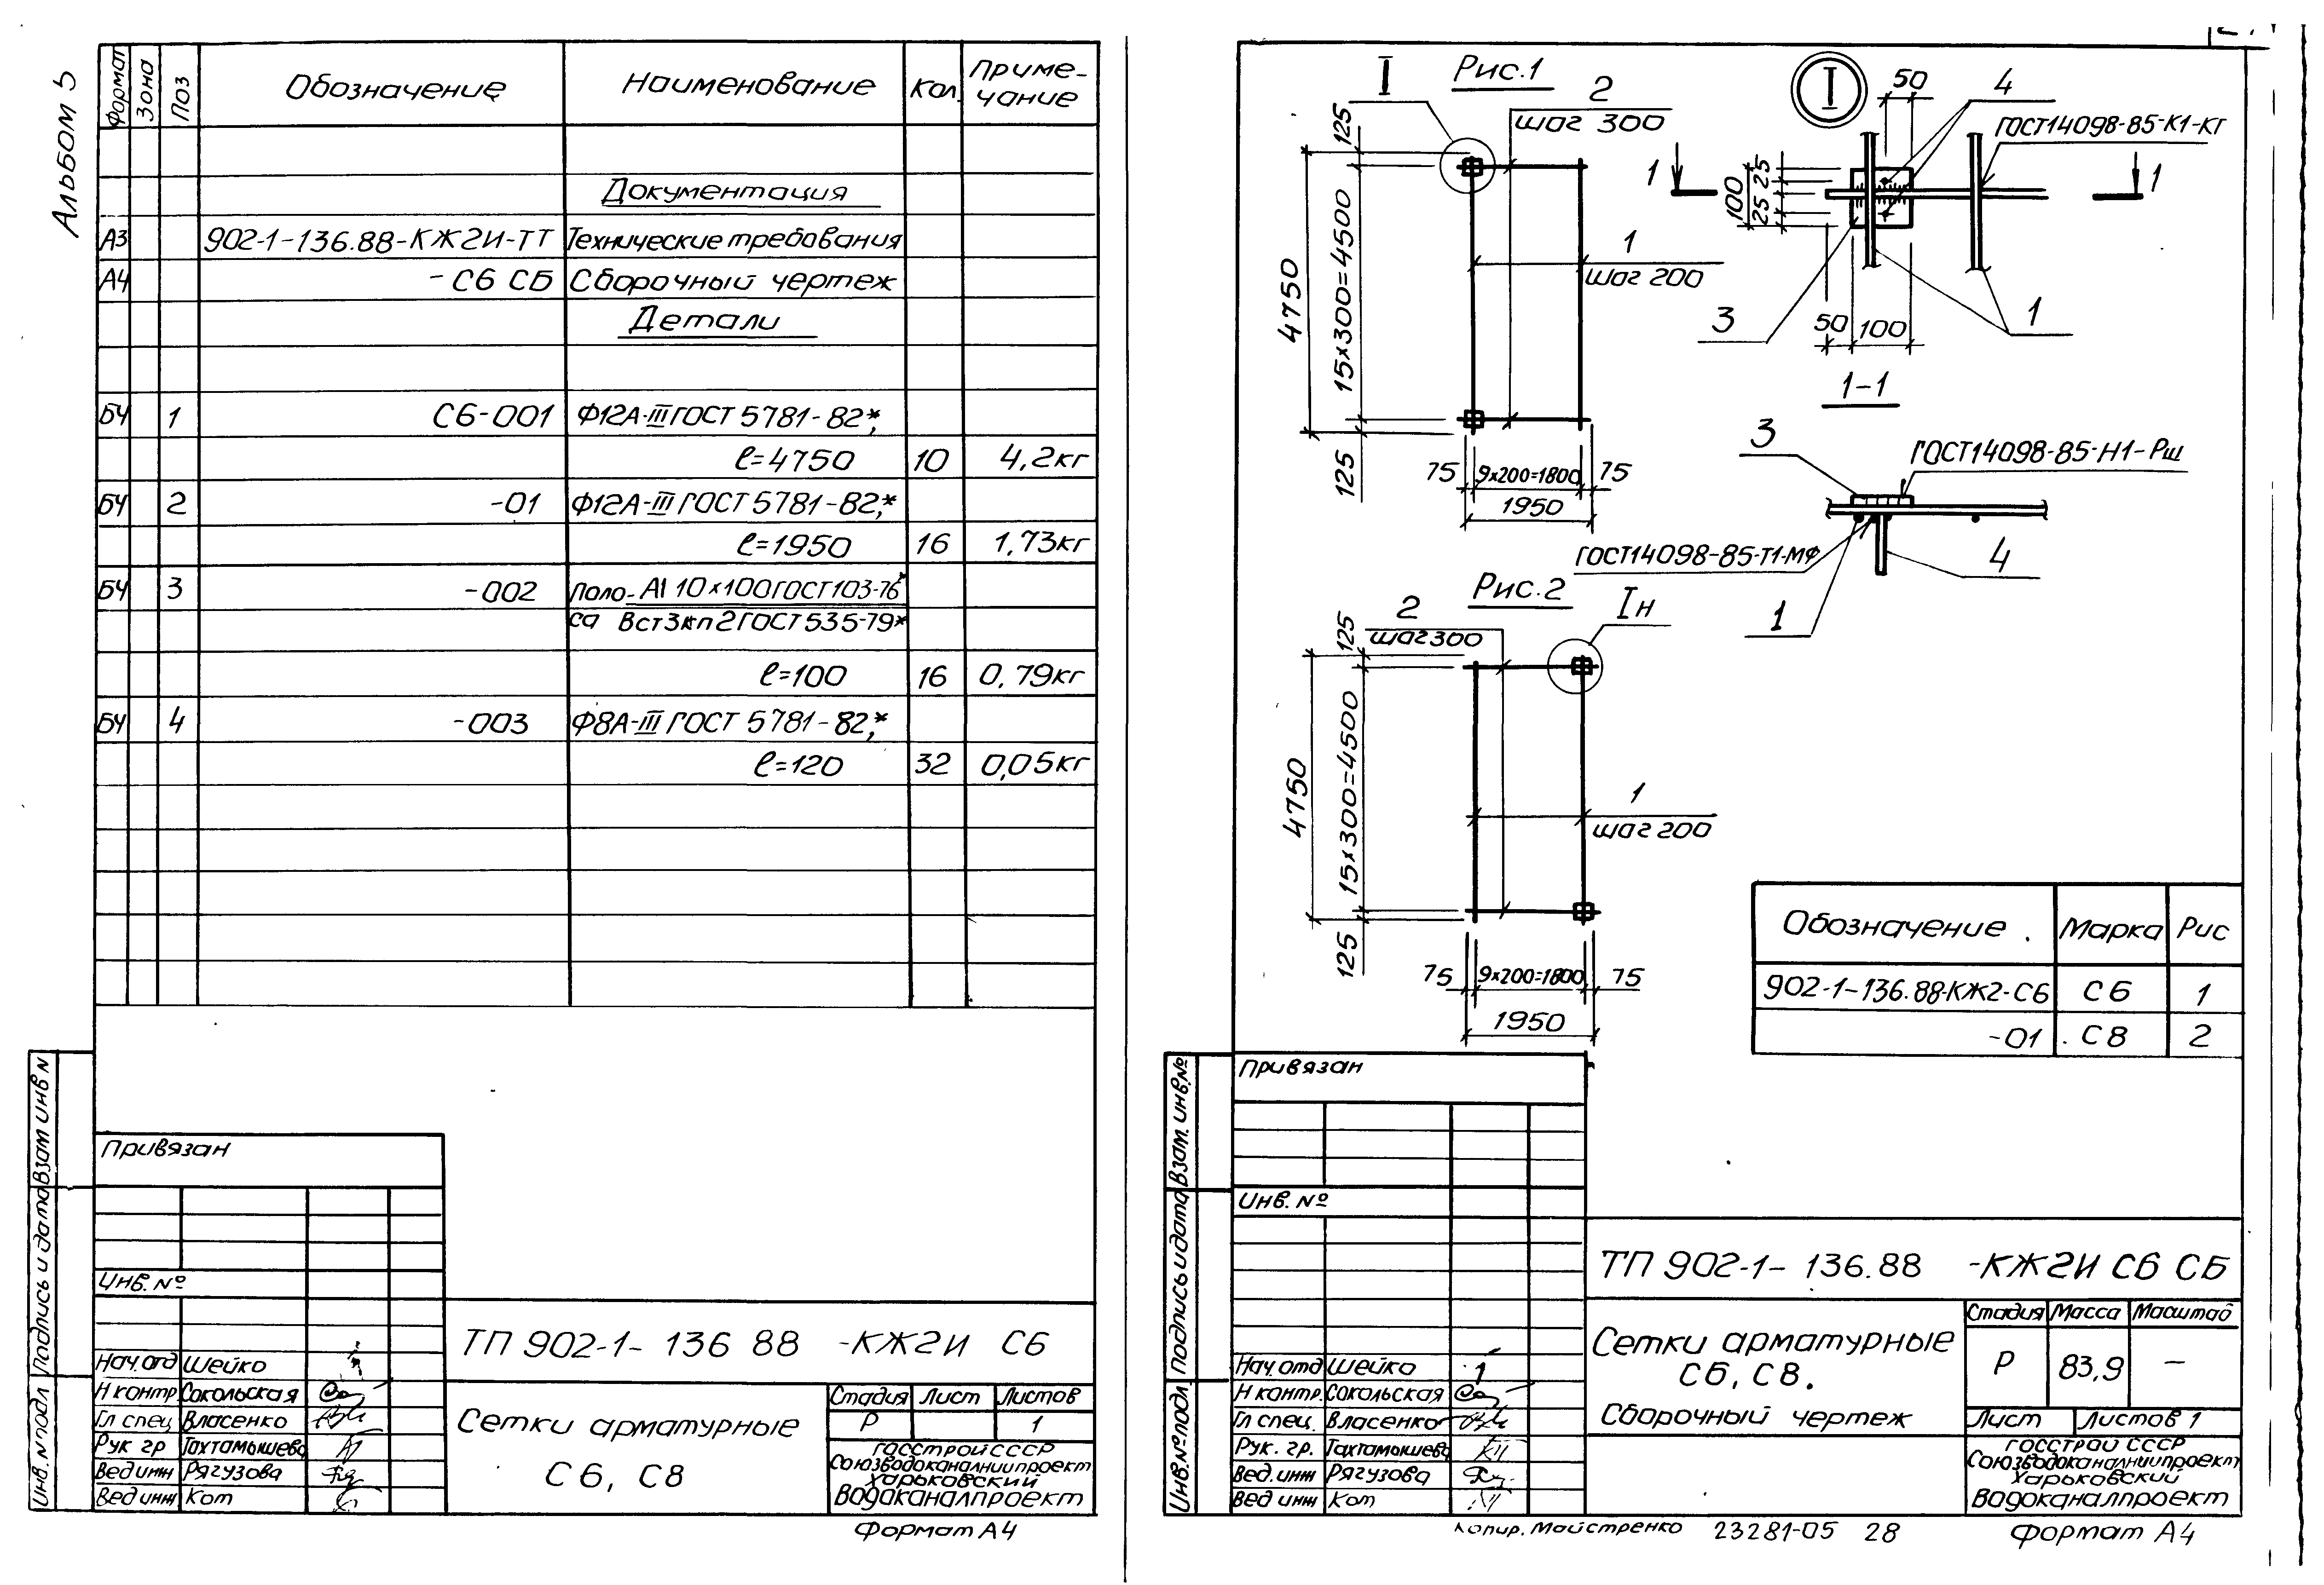 Альбом 5
Формат Зона Поз Обозначение Наименование Кол. Приме-
чание
Документация
А3 902-1-136.88-КЖ2И-ТТ Технические требования
А4 -С6 СБ Сборочный чертеж
Детали
БЧ 1 С6-001 Ф12А-III ГОСТ 5781-82*,
ℓ=4750 10 4,2кг
БЧ 2 -01 Ф12А-III ГОСТ 5781-82,*
ℓ=1950 16 1,73кг
БЧ 3 -002 Поло- А1 10×100 ГОСТ 103-76*
са Вст3кп2 ГОСТ 535-79*
ℓ=100 16 0,79кг
БЧ 4 -003 Ф8А-III ГОСТ 5781-82,*
ℓ=120 32 0,05кг
Взам инв N
Подпись и дата
Инв. N подл
Привязан
Инв. №
Нач. отд Шейко
Н контр Сокольская
Гл спец Власенко
Рук гр Тахтамышева
Вед инж Рягузова
Вед инж Кот
ТП 902-1- 136 88 -КЖ2И С6
Сетки арматурные
С6, С8
Стадия Лист Листов
Р 1
Госстрой СССР
Союзводоканалниипроект
Харьковский
Водоканалпроект
Формат А4
Рис.1
I
2
шаг 300
125
4750
15×300=4500
125
1
шаг 200
75 9×200=1800 75
1950
I
50
4
ГОСТ14098-85-К1-Кт
1 1
100
25 25
3
50 100
1
1-1
3
ГОСТ14098-85-Н1-Рш
ГОСТ14098-85-Т1-Мф
4
1
Рис.2
Iн
2
шаг 300
125
4750
15×300=4500
125
1
шаг 200
75 9×200=1800 75
1950
Обозначение . Марка Рис
902-1-136.88-КЖ2-С6 С6 1
-01 С8 2
Взам. инв.№
Подпись и дата
Инв.№ подл.
Привязан
Инв. №
Нач. отд Шейко
Н контр Сокольская
Гл спец. Власенко
Рук. гр. Тахтамышева
Вед. инж Рягузова
Вед инж Кот
ТП 902-1- 136.88 -КЖ2И С6 СБ
Сетки арматурные
С6, С8.
Сборочный чертеж
Стадия Масса Масштаб
Р 83,9 —
Лист Листов 1
Госстрой СССР
Союзводоканалниипроект
Харьковский
Водоканалпроект
Копир. Майстренко 23281-05 28 Формат А4